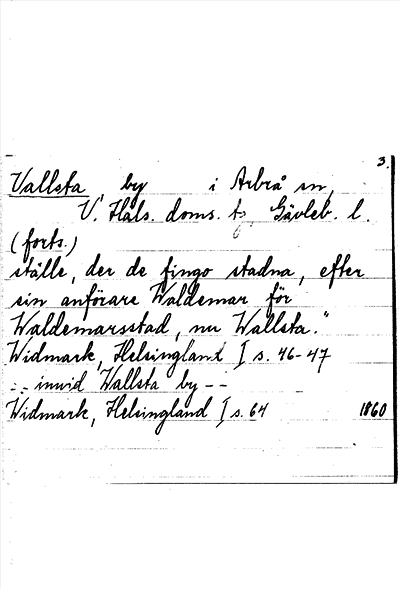 3.
Vallsta, by i Arbrå sn,
V. Häls. doms. t, Gävleb. l.
(forts.)
ställe, der de fingo stadna, efter
sin anförare Waldemar för
Waldemarsstad, nu Wallsta."
Widmark, Helsingland I s. 46-47
-- inwid Wallsta by --
Widmark, Helsingland I s. 64 1860